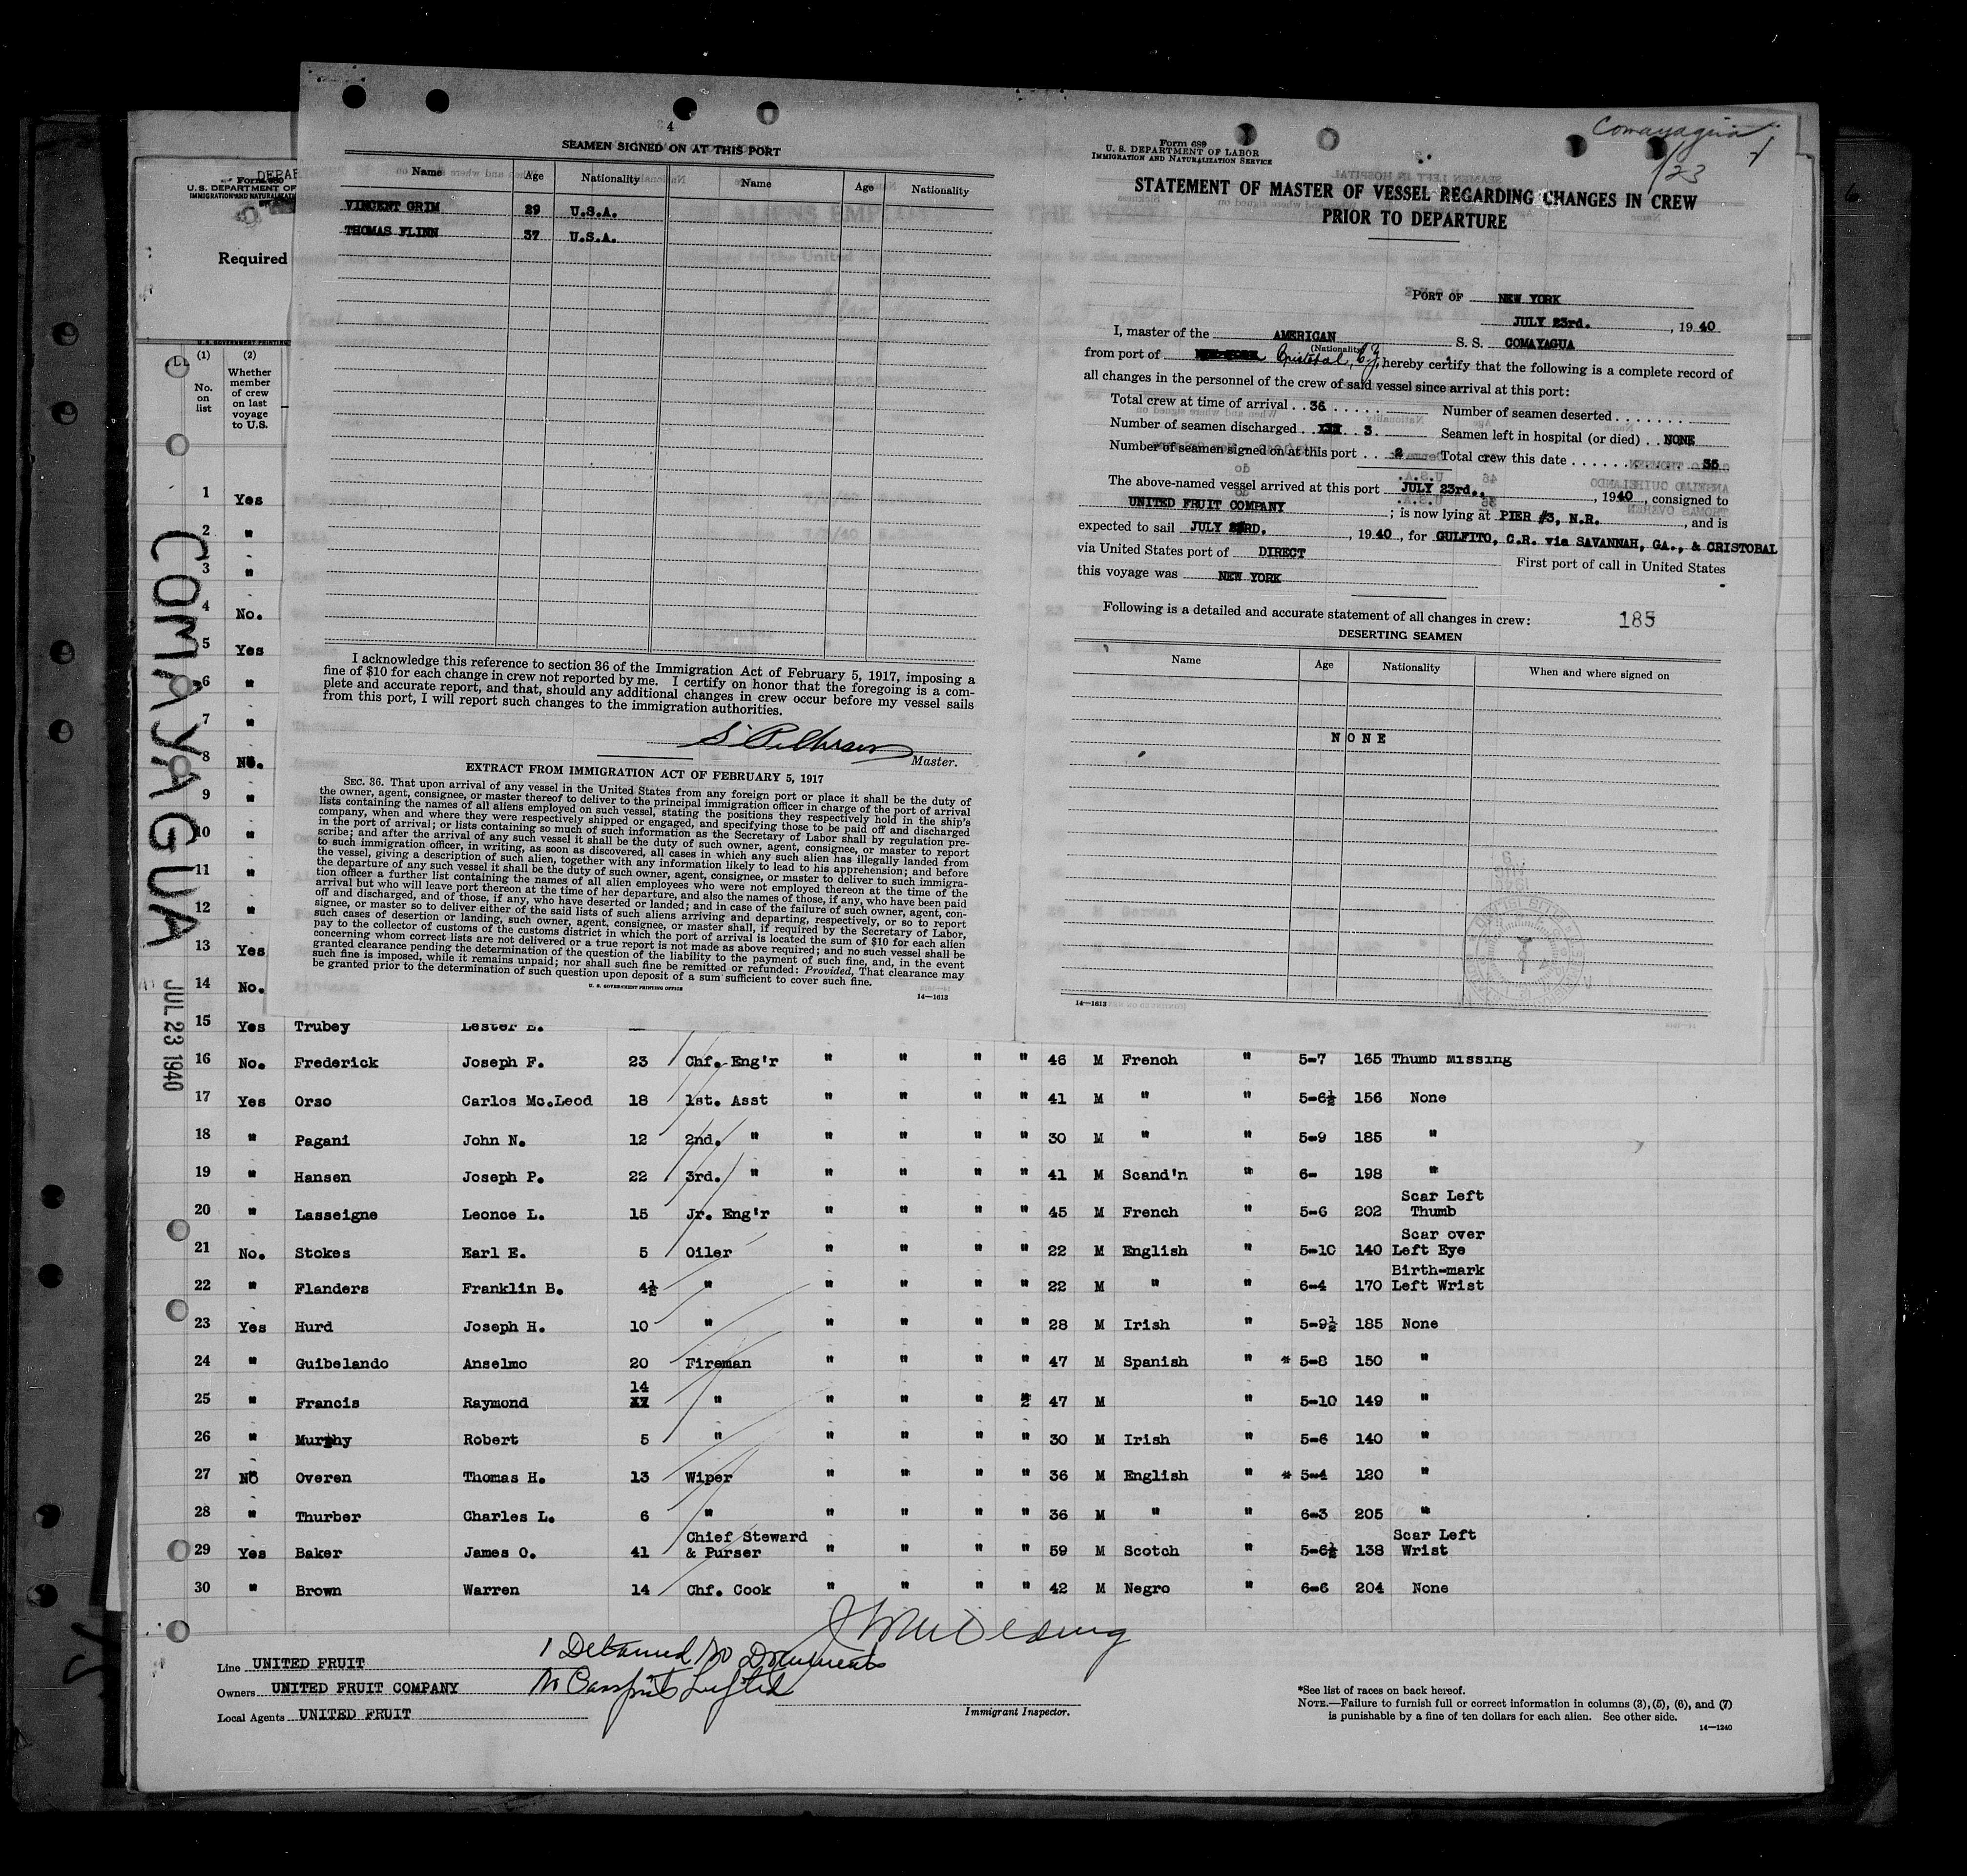 4
SEAMEN SIGNED ON AT THIS PORT
Name Age Nationality Name Age Nationality
VINCENT GRIM 29 U.S.A.
THOMAS FLINN 37 U.S.A.
I acknowledge this reference to section 36 of the Immigration Act of February 5, 1917, imposing a
fine of $10 for each change in crew not reported by me. I certify on honor that the foregoing is a com-
plete and accurate report, and that, should any additional changes in crew occur before my vessel sails
from this port, I will report such changes to the immigration authorities.
Master.
EXTRACT FROM IMMIGRATION ACT OF FEBRUARY 5, 1917
SEC. 36. That upon arrival of any vessel in the United States from any foreign port or place it shall be the duty of
the owner, agent, consignee, or master thereof to deliver to the principal immigration officer in charge of the port of arrival
lists containing the names of all aliens employed on such vessel, stating the positions they respectively hold in the ship's
company, when and where they were respectively shipped or engaged, and specifying those to be paid off and discharged
in the port of arrival; or lists containing so much of such information as the Secretary of Labor shall by regulation pre-
scribe; and after the arrival of any such vessel it shall be the duty of such owner, agent, consignee, or master to report
to such immigration officer, in writing, as soon as discovered, all cases in which any such alien has illegally landed from
the vessel, giving a description of such alien, together with any information likely to lead to his apprehension; and before
the departure of any such vessel it shall be the duty of such owner, agent, consignee, or master to deliver to such immigra-
tion officer a further list containing the names of all alien employees who were not employed thereon at the time of the
arrival but who will leave port thereon at the time of her departure, and also the names of those, if any, who have been paid
off and discharged, and of those, if any, who have deserted or landed; and in case of the failure of such owner, agent, con-
signee, or master so to deliver either of the said lists of such aliens arriving and departing, respectively, or so to report
such cases of desertion or landing, such owner, agent, consignee, or master shall, if required by the Secretary of Labor,
pay to the collector of customs of the customs district in which the port of arrival is located the sum of $10 for each alien
concerning whom correct lists are not delivered or a true report is not made as above required; and no such vessel shall be
granted clearance pending the determination of the question of the liability to the payment of such fine, and, in the event
such fine is imposed, while it remains unpaid; nor shall such fine be remitted or refunded: Provided, That clearance may
be granted prior to the determination of such question upon deposit of a sum sufficient to cover such fine.
U. S. GOVERNMENT PRINTING OFFICE
14—1613
Comayagua
7/23
Form 689
U. S. DEPARTMENT OF LABOR
IMMIGRATION AND NATURALIZATION SERVICE
STATEMENT OF MASTER OF VESSEL REGARDING CHANGES IN CREW
PRIOR TO DEPARTURE
PORT OF NEW YORK
JULY 23rd. , 19 40
I, master of the AMERICAN S. S. COMAYAGUA
(Nationality)
from port of Cristobal, C.Z. hereby certify that the following is a complete record of
all changes in the personnel of the crew of said vessel since arrival at this port:
Total crew at time of arrival . . 36 . . . . . . Number of seamen deserted . . . . . . .
Number of seamen discharged . . 3. Seamen left in hospital (or died) . . NONE
Number of seamen signed on at this port . . . 2 Total crew this date . . . . . . . 35
The above-named vessel arrived at this port JULY 23rd., , 1940 , consigned to
UNITED FRUIT COMPANY ; is now lying at PIER #3, N.R. , and is
expected to sail JULY 23RD. , 19 40 , for GULFITO, C.R. via SAVANNAH, GA., & CRISTOBAL
via United States port of DIRECT First port of call in United States
this voyage was NEW YORK
Following is a detailed and accurate statement of all changes in crew: 185
DESERTING SEAMEN
Name Age Nationality When and where signed on
NONE
14—1613
Form 680
U. S. DEPARTMENT OF
IMMIGRATION AND NATURALIZAT
Required
(1) (2)
No. on list
Whether member of crew on last voyage to U.S.
COMAYAGUA
JUL 23 1940
1 Yes
2 "
3 "
4 No.
5 Yes
6 "
7 "
8 No.
9 "
10 "
11 "
12 "
13 Yes
14 No.
15 Yes Trubey Lester E.
16 No. Frederick Joseph F. 23 Chf. Eng'r " " " " 46 M French " 5-7 165 Thumb Missing
17 Yes Orso Carlos Mc.Leod 18 1st. Asst " " " " 41 M " " 5-6½ 156 None
18 " Pagani John N. 12 2nd. " " " " " 30 M " " 5-9 185 "
19 " Hansen Joseph P. 22 3rd. " " " " " 41 M Scand'n " 6- 198 "
20 " Lasseigne Leonce L. 15 Jr. Eng'r " " " " 45 M French " 5-6 202 Scar Left Thumb
21 No. Stokes Earl E. 5 Oiler " " " " 22 M English " 5-10 140 Scar over Left Eye
22 " Flanders Franklin B. 4½ " " " " " 22 M " " 6-4 170 Birth-mark Left Wrist
23 Yes Hurd Joseph H. 10 " " " " " 28 M Irish " 5-9½ 185 None
24 " Guibelando Anselmo 20 Fireman " " " " 47 M Spanish " * 5-8 150 "
25 " Francis Raymond 14 " " " " " 47 M " 5-10 149 "
26 " Murphy Robert 5 " " " " " 30 M Irish " 5-6 140 "
27 No Overen Thomas H. 13 Wiper " " " " 36 M English " * 5-4 120 "
28 " Thurber Charles L. 6 " " " " " 36 M " " 6-3 205 "
29 Yes Baker James O. 41 Chief Steward & Purser " " " " 59 M Scotch " 5-6½ 138 Scar Left Wrist
30 " Brown Warren 14 Chf. Cook " " " " 42 M Negro " 6-6 204 None
1 Detained No Documents
No Passports Lifted
Line UNITED FRUIT
Owners UNITED FRUIT COMPANY
Local Agents UNITED FRUIT
Immigrant Inspector.
*See list of races on back hereof.
NOTE.—Failure to furnish full or correct information in columns (3), (5), (6), and (7)
is punishable by a fine of ten dollars for each alien. See other side.
14—1240